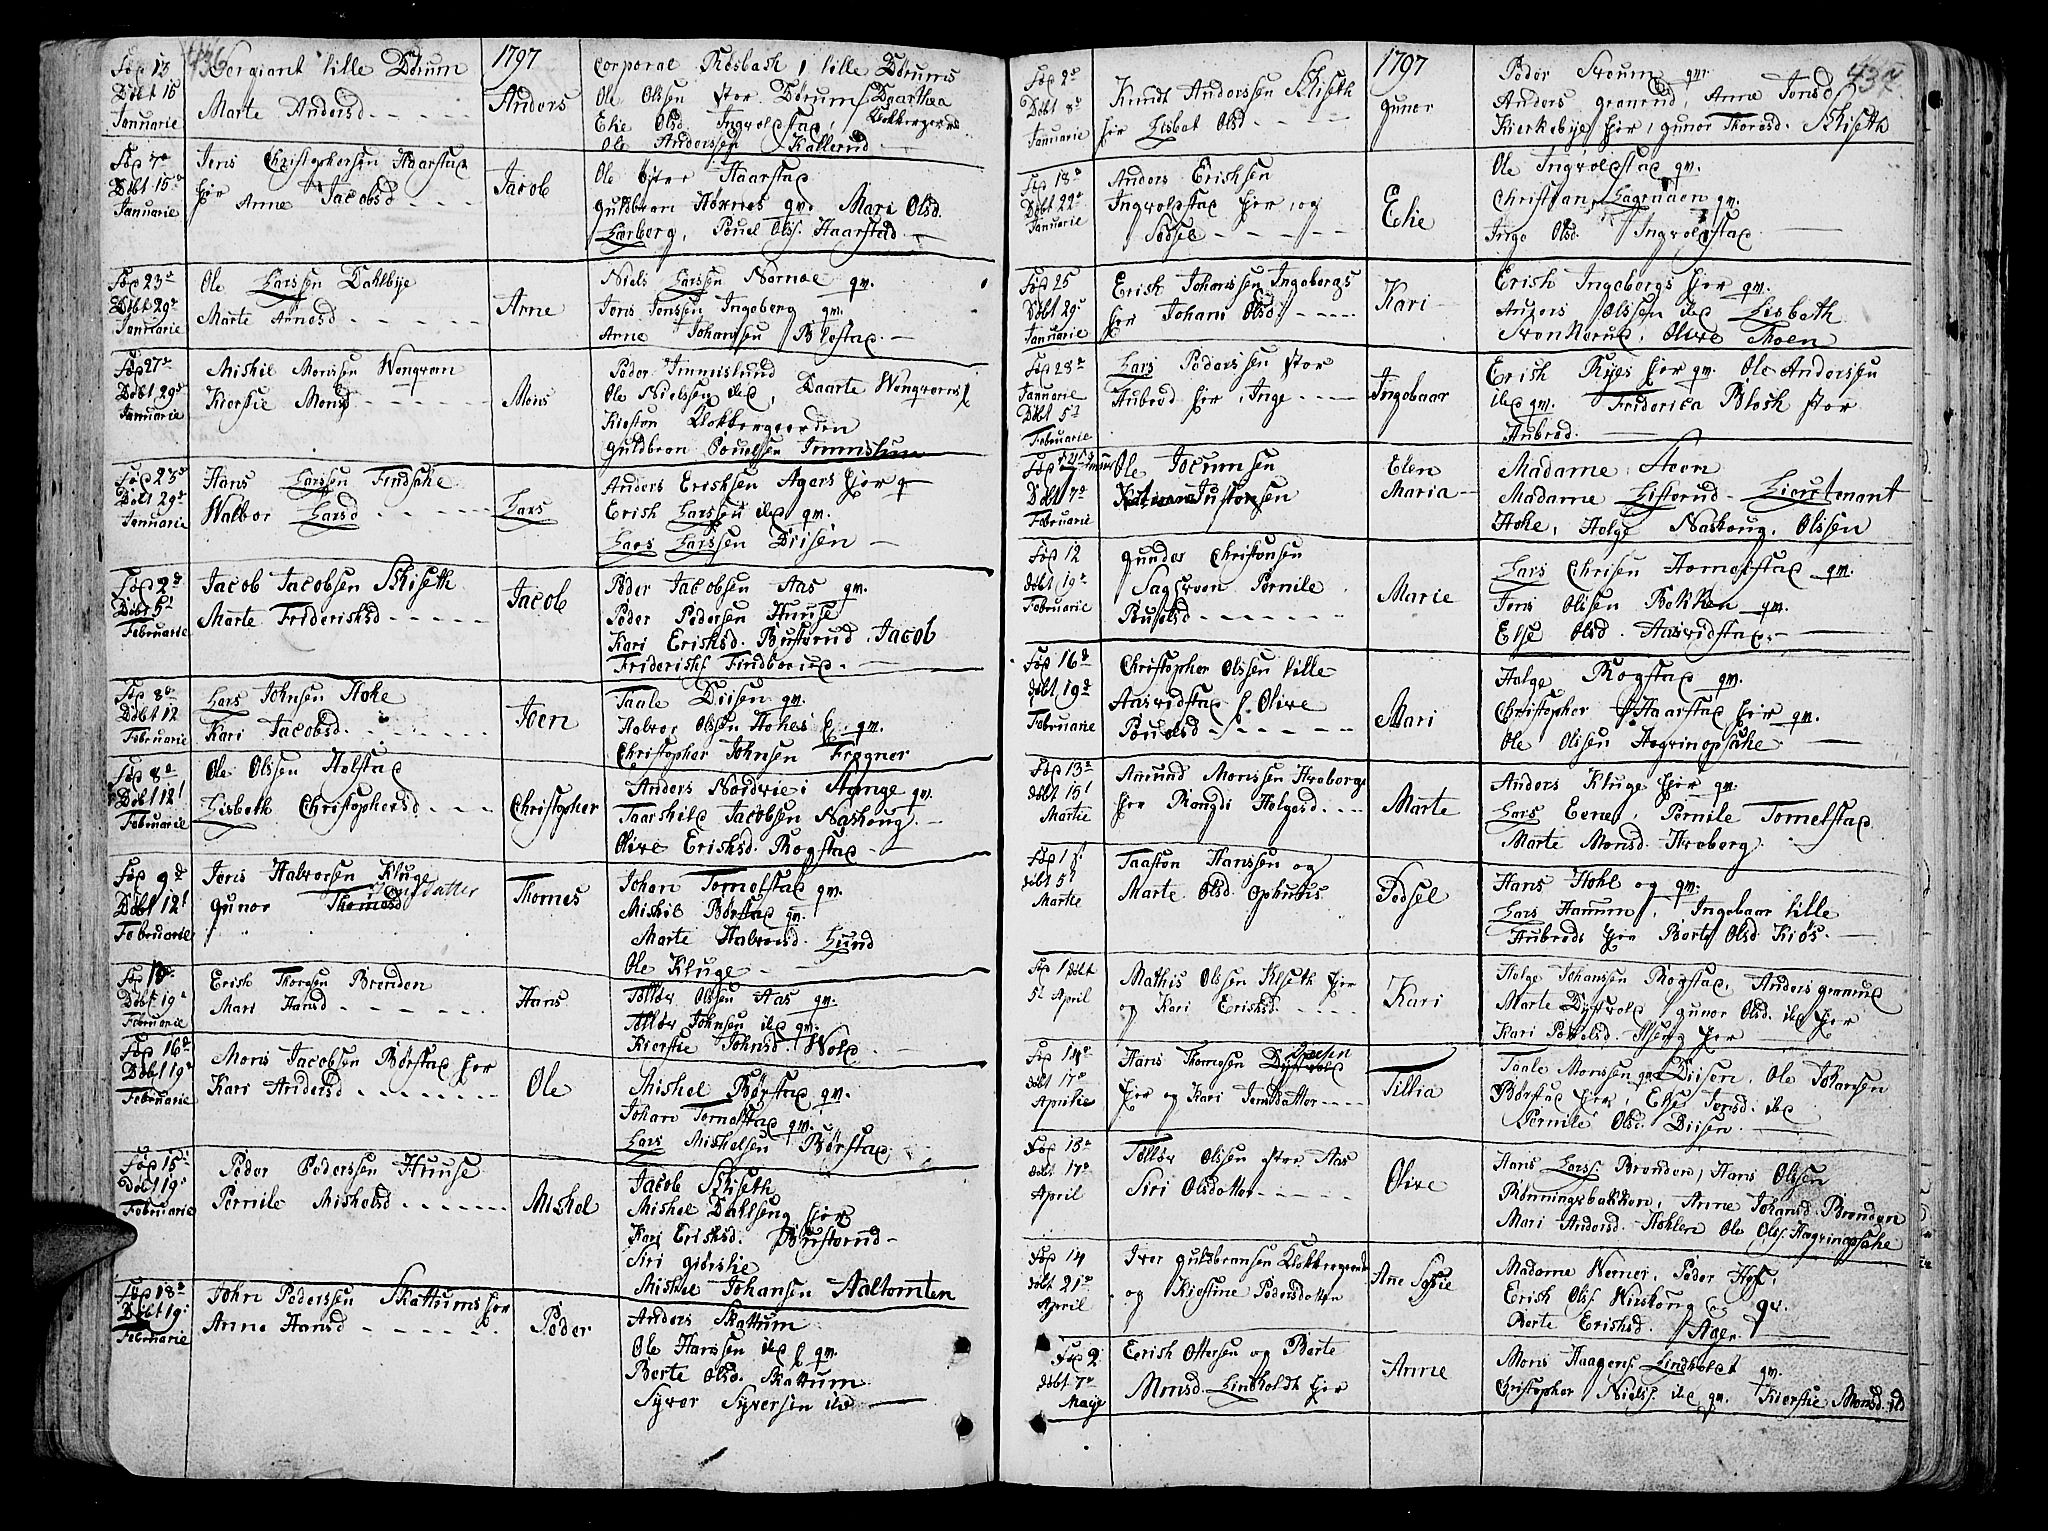 436
1797
Fød 13
Døbt 15
Januarie
Sergiant lille Dørum
Marte Andersd
Anders
Corporal Røsbach, lille Dørums
Ole Olssen stor Dørum, Daarthea
Elie Olsd. Ingvolstad, Klokkergaard
Ole Anderssen Kallerud
Døbt 15
Januarie
Jens Christophersen Haarstad
her Anne Jacobsd
Jacob
Ole øfver Haarstad
Guldbran Hornes qv. Mari Olsd.
Lærberg, Povel Olss. Haarstad
Fød 23
Døbt 29
Januarie
Ole Larssen Dahlbye
Marte Arnesd
Arne
Niels Larssen Nornæ qv.
Jens Jenssen Ingeberg qv.
Arne Johanssen Blestad
Fød 27
Døbt 29
Januarie
Mikkil Monssen Wongram
Kierstie Monsd
Mons
Peder Immislund
Ole Nielssen ibd, Daarte Wongrams
Kiersten Klokkergaarden
Guldbran Povelsen Immislun
Fød 23
Døbt 29
Januarie
Hans Larssen Findsahl
Walbor Larsd
Lars
Anders Eriksen Agers her q
Erik Larssen ibd qv.
Lars Larssen Diisen
Fød 2
Døbt 5
Februarie
Jacob Jacobsen Kliseth
Marte Frideriksd
Jacob
Peder Jacobsen Aas qv.
Peder Pedersen Huuse
Kari Eriksd. Busterud Jacob
Friderikss
Fød 8
Døbt 12
Februarie
Lars Johnsen Hoke
Kari Jacobsd
Joen
Taale Diisen qv.
Halvor Olssen Hokes E. qv.
Christopher Johnsen Frogner
Fød 8
Døbt 12
Februarie
Ole Olssen Holstad
Lisbeth Christophersd
Christopher
Anders Nordvie i Stange qv.
Taarkild Jacobsen Naskoug
Olive Eriksd. Rogstad
Fød 9
Døbt 12
Februarie
Jens Halvorsen Kluge
Gunor Thomasd Jonsdatter
Thomes
Johan Tomelstad qv.
Mikkil Børstad qv.
Marte Halvorsd. Lund
Ole Kluge
Døbt 19
Februarie
Erik Thoresen Brenden
Mari Hansd
Hans
Tøllør Olssen Aas qv.
Tøllør Johnsen ibd qv.
Kierstie Johnsd. Wold
Fød 16
Døbt 19
Februarie
Mons Jacobsen Børstad her
Kari Andersd
Ole
Mikkel Børstad qv.
Johan Tomelstad qv.
Lars Mikkelsen Børstad
Fød 15
Døbt 19
Februarie
Peder Pederssen Huuse
Pernile Mikkelsd
Mikkel
Jacob Kliseth
Mikkel Dahlseng her
Kari Eriksd. Busterud
Siri giørlie
Mikkel Johansen Aaltomten
Fød 18
Døbt 19
Februarie
John Pederssen Skattums her
Anne Hansd
Peder
Anders Skattum
Ole Hanssen ibd qv.
Berte Olsd. Skattum
Syver Syversen ibd
437
1797
Fød 2
Døbt 8
Januarie
Knudt Anderssen Kliseth
her Lisbet Olsd
Gunor
Peder Sveum qv.
Anders grønrud, Anne Jonsd
Kierkebye her, gunor Thoresd. Kliseth
Fød 18
Døbt 22
Januarie
Anders Eriksen
Ingvoldstad her, og
Sodsel
Elie
Ole Ingvolstad qv.
Christian Hagenaen qv.
Inge Olsd. Ingvolstad
Fød 25
Døbt 29
Januarie
Erik Johanssen Ingebergs
her Johane Olsd
Kari
Erik Ingebergs her qv.
Anders Olssen ibd Lisbeth
Olive Thoen
Fød 28
Januarie
Døbt 5
Februarie
Lars Pederssen stor
Hubred her, Inge
Ingebaar
Erik Ryes her qv. Ole Anderssen
ibd qv. Friderica Blok stor
Hubred
Døbt 7
Februarie
Ole Jocumsen
Elen
Maria
Madame Steen
Madame Listerud Lieutenant
Hoke, Helge Naskoug, Olssen
Fød 12
døbt 19
Februarie
Gunder Christensen
Sagsveen Pernile
Poulsd
Marie
Lars Chrisen Homelstad qv.
Jens Olssen Bakken qv.
Else Olsd. Aasvidstad
Fød 16
døbt 19
Februarie
Christopher Olssen lille
Aasvidstad h. Olive
Povelsd
Mari
Helge Rogstad qv.
Christopher Haarstad her qv.
Ole Olssen
Fød 13
døbt 15
Martie
Amund Monssen Hroberg
her Rangdi Helgesd.
Marte
Anders Kluge her qv.
Lars Eene, Pernile Tomelstad
Marte Monsd. Hroberg
døbt 5
Martie
Taasten Hanssen og
Marte Olsd. Ophuus
Sodsel
Hans Hohl og qv.
Lars Hamm, Ingebaar lille
Hubreds her Berte Olsd Kiøs
Fød 1 døbt
5 April
Mathis Olssen Klseth her
og Kari Eriksd.
Kari
Helge Johanssen Rogstad, Anders grønrud
Marte Dystvold, gunor Olsd. ibd her
Kari Povelsd. her
Fød 14
døbt 17
Aprilie
Hans Thomesen Dystvold
her og Kari Jensdatter
Tillia
Taale Monssen qv Diisen, Ole Johansen
Børstad her, Else Jonsd. ibd
Pernile Olsd. Diisen
Fød 13
døbt 17
April
Tøllør Olssen stor Aas
Siri Olsdatter
Olive
Hans Larss. Brenden, Hans Olssen
Rønningsbakken, Anne Johansd. Brenden
Mari Andersd. Hohlen Ole Olss.
Fød 14
døbt 21
April
Iver guldbransen Klokkergaarden
og Kiestine Pedersdatter
Ane Sofie
Madame Werner, Peder Hoff,
Erik Olss. og qv.
Berte Eriksd. Ager
Fød 2
døbt 7
Maye
Erik Ottersen og Berte
Monsd. Lindholdt her
Anne
Mons Haagens. Lindholdt qv.
Christopher Nielss. ibd qv. Kierstie Monsd. ibd